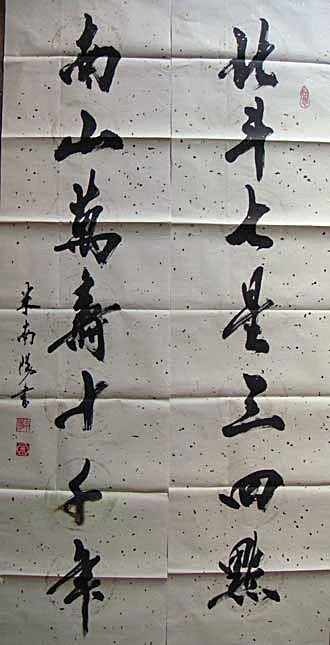 北斗七星三四點
南山萬壽十千年
米南陽書